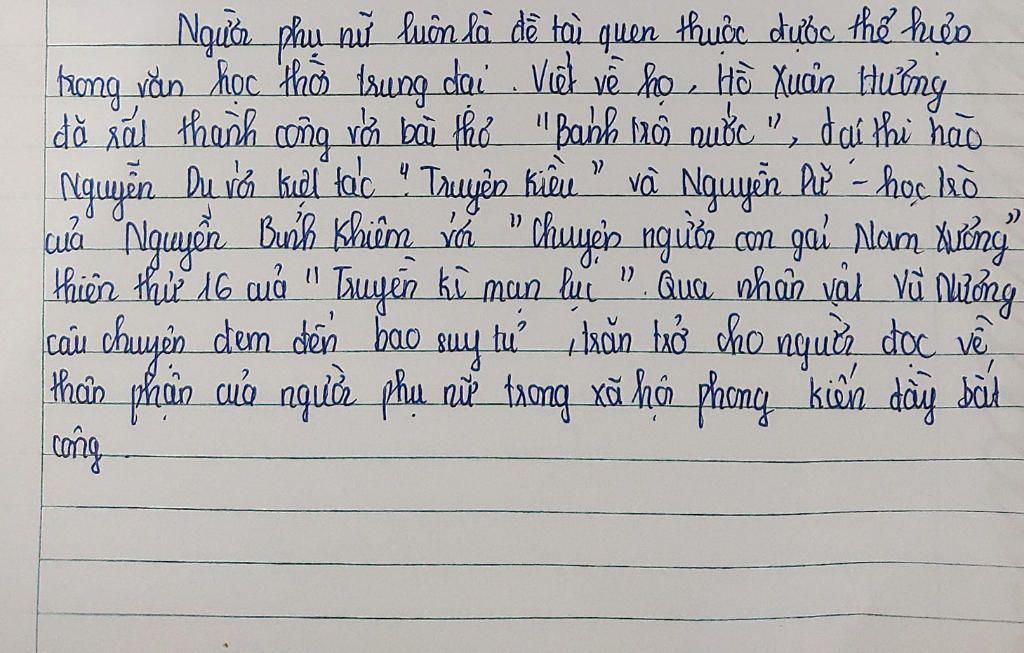 Người phụ nữ luôn là đề tài quen thuộc được thể hiện
trong văn học thời trung đại. Viết về họ, Hồ Xuân Hương
đã rất thành công với bài thơ "Bánh trôi nước", đại thi hào
Nguyễn Du với kiệt tác "Truyện Kiều" và Nguyễn Dữ - học trò
của Nguyễn Bỉnh Khiêm với "Chuyện người con gái Nam Xương"
thiên thứ 16 của "Truyền kì mạn lục". Qua nhân vật Vũ Nương
câu chuyện đem đến bao suy tư, trăn trở cho người đọc về
thân phận của người phụ nữ trong xã hội phong kiến đầy bất
công